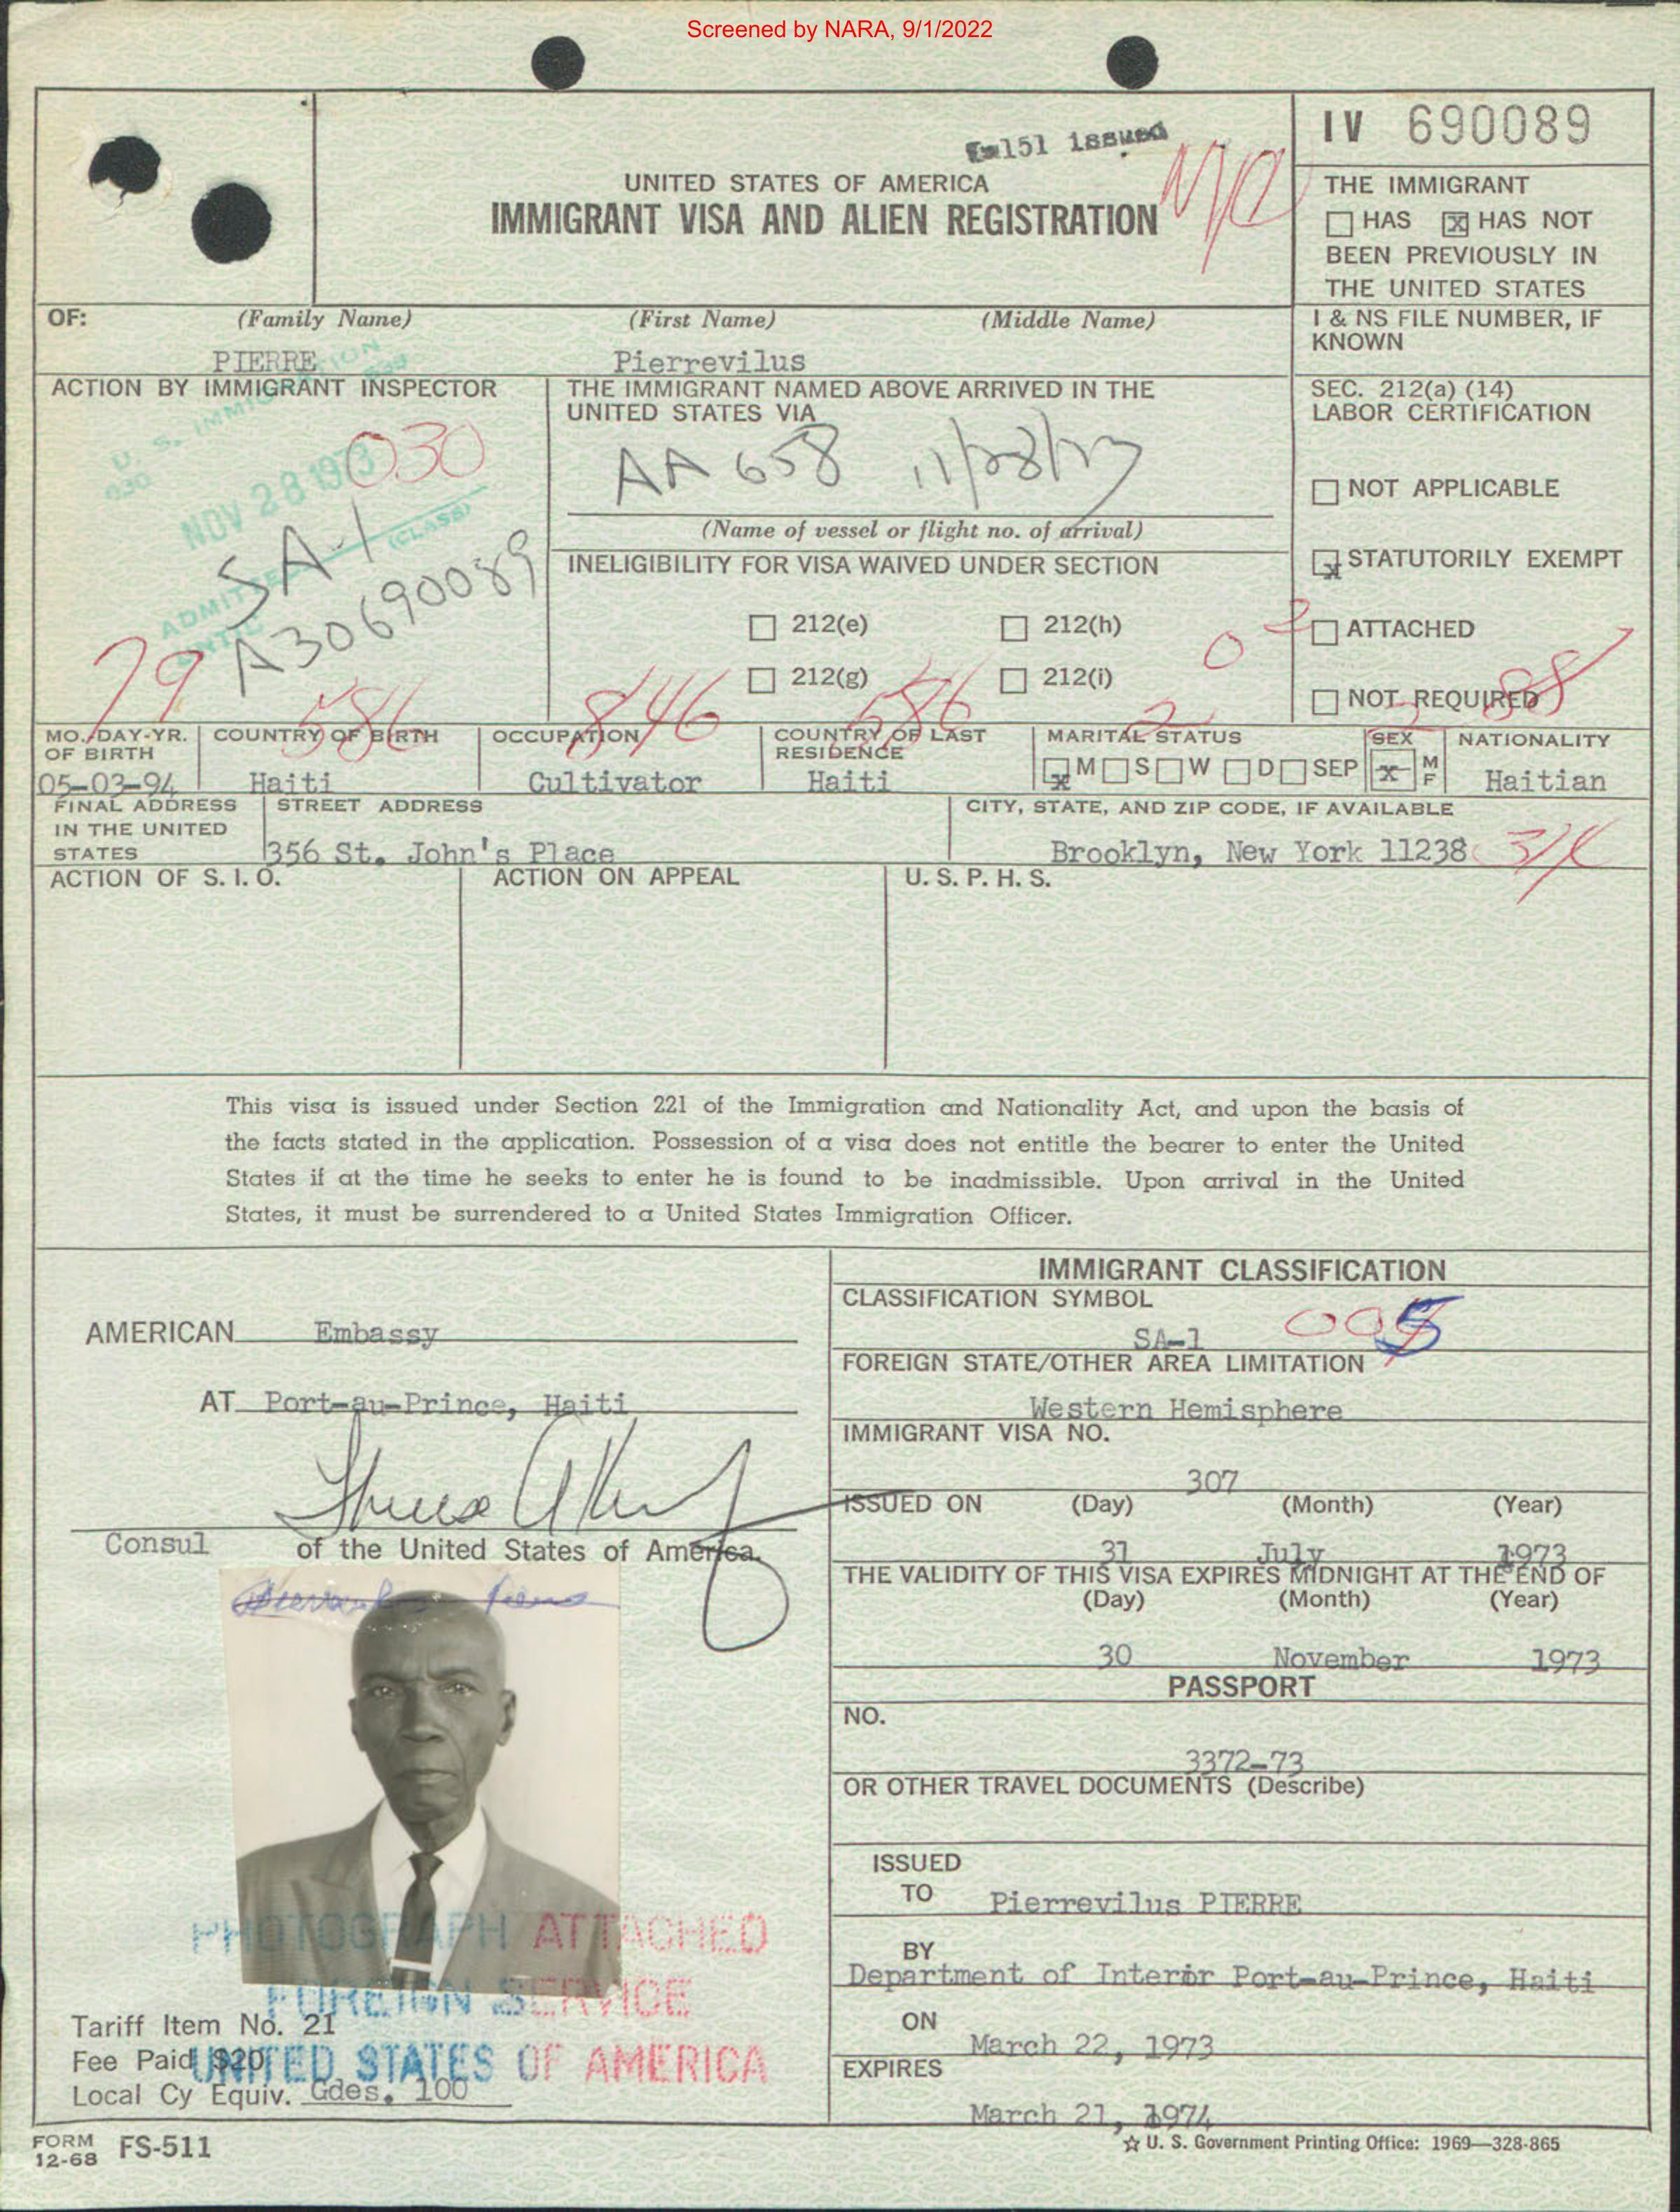 Screened by NARA, 9/1/2022
IV 690089
I-151 issued
UNITED STATES OF AMERICA
IMMIGRANT VISA AND ALIEN REGISTRATION
THE IMMIGRANT
HAS x HAS NOT
BEEN PREVIOUSLY IN
THE UNITED STATES
OF: (Family Name) (First Name) (Middle Name)
PIERRE Pierrevilus
I & NS FILE NUMBER, IF
KNOWN
ACTION BY IMMIGRANT INSPECTOR
U. S. IMMIGRATION
030
NOV 28 1973
030
SA-1
(CLASS)
ADMITTED
A30690089
79
THE IMMIGRANT NAMED ABOVE ARRIVED IN THE
UNITED STATES VIA
AA 658 11/28/73
(Name of vessel or flight no. of arrival)
INELIGIBILITY FOR VISA WAIVED UNDER SECTION
212(e) 212(h)
212(g) 212(i)
SEC. 212(a) (14)
LABOR CERTIFICATION
NOT APPLICABLE
x STATUTORILY EXEMPT
ATTACHED
NOT REQUIRED
586 846 586 2
MO./DAY-YR.
OF BIRTH
05-03-94
COUNTRY OF BIRTH
Haiti
OCCUPATION
Cultivator
COUNTRY OF LAST
RESIDENCE
Haiti
MARITAL STATUS
x M S W D SEP
SEX
x M
F
NATIONALITY
Haitian
FINAL ADDRESS
IN THE UNITED
STATES
STREET ADDRESS
356 St. John's Place
CITY, STATE, AND ZIP CODE, IF AVAILABLE
Brooklyn, New York 11238
ACTION OF S. I. O. ACTION ON APPEAL U. S. P. H. S.
This visa is issued under Section 221 of the Immigration and Nationality Act, and upon the basis of
the facts stated in the application. Possession of a visa does not entitle the bearer to enter the United
States if at the time he seeks to enter he is found to be inadmissible. Upon arrival in the United
States, it must be surrendered to a United States Immigration Officer.
AMERICAN Embassy
AT Port-au-Prince, Haiti
Consul of the United States of America.
PHOTOGRAPH ATTACHED
FOREIGN SERVICE
UNITED STATES OF AMERICA
Tariff Item No. 21
Fee Paid $20
Local Cy Equiv. Gdes. 100
IMMIGRANT CLASSIFICATION
CLASSIFICATION SYMBOL
SA-1
FOREIGN STATE/OTHER AREA LIMITATION
Western Hemisphere
IMMIGRANT VISA NO.
307
ISSUED ON (Day) (Month) (Year)
31 July 1973
THE VALIDITY OF THIS VISA EXPIRES MIDNIGHT AT THE END OF
(Day) (Month) (Year)
30 November 1973
PASSPORT
NO.
3372-73
OR OTHER TRAVEL DOCUMENTS (Describe)
ISSUED
TO Pierrevilus PIERRE
BY
Department of Interior Port-au-Prince, Haiti
ON
March 22, 1973
EXPIRES
March 21, 1974
FORM
12-68 FS-511
☆ U. S. Government Printing Office: 1969—328-865